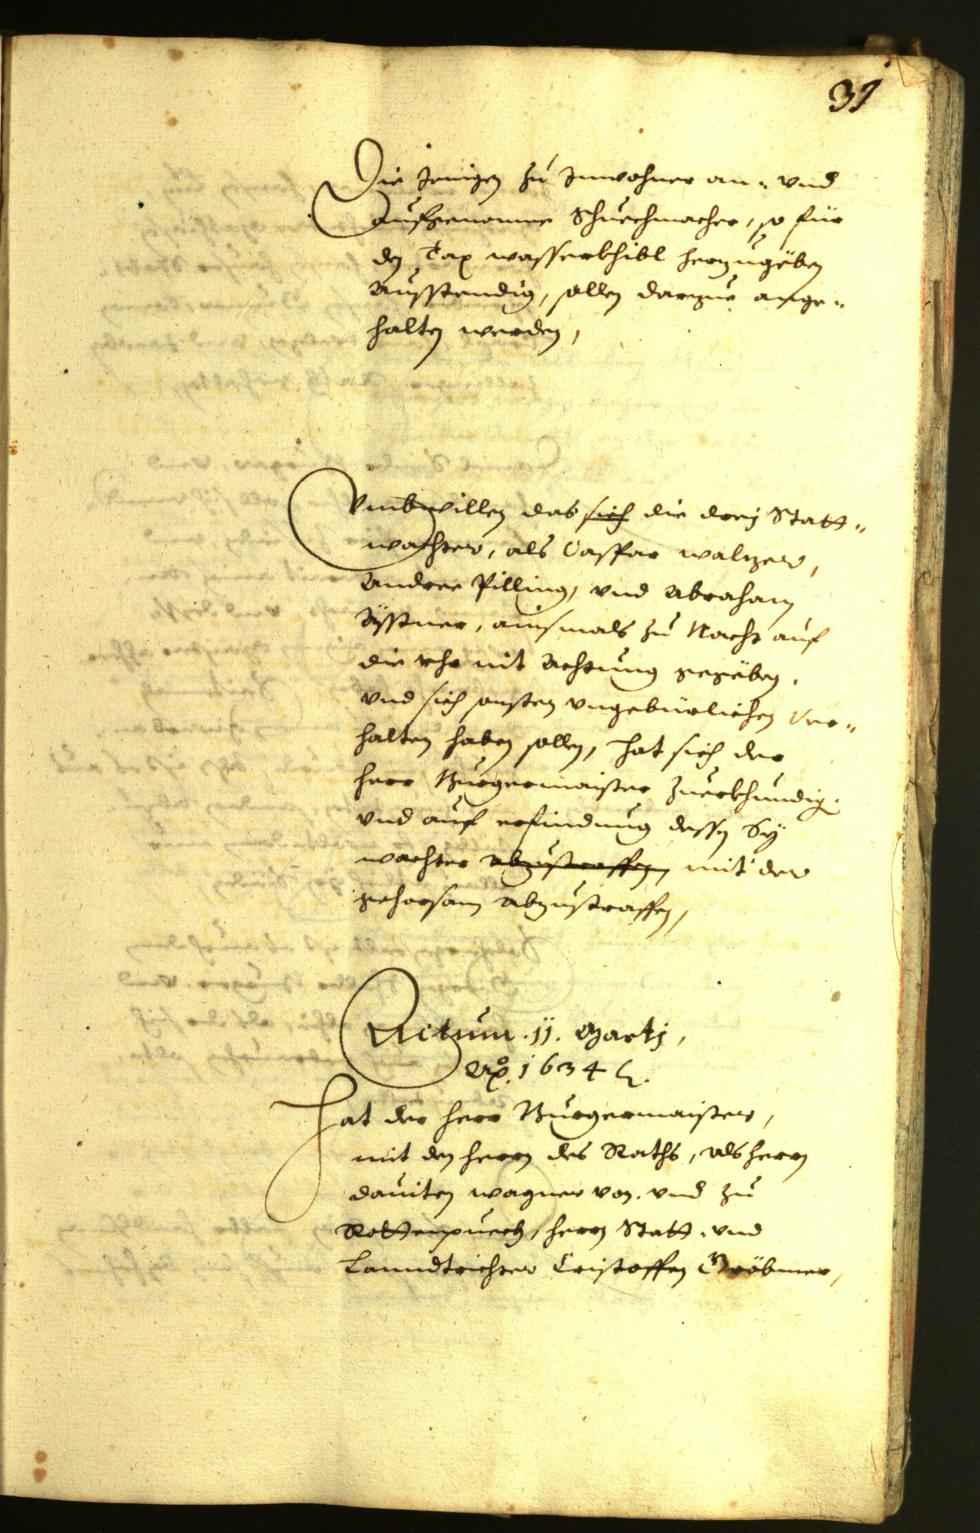 39
Die Jenigen zu Inwohner an- und
aufgenomne Schuechmacher, so für
den Tax wasserkhibl herzugeben
Ausstendig, sollen darzue ange-
halten werden,
Umbwillen das sich die dreÿ Statt-
wachter, als Caspar walzer,
Andree Pilling, und Abraham
ainsmals zu Nacht auf
die uhr nit Achtung gegeben,
und sich sonsten ungebürlichen ver-
halten haben sollen, hat sich der
herr Burgermaister zuerkhundig:
und auf erfindung dessen Sÿ
wachter abzustraffen mit der
gehorsam abzustraffen,
Actum .11. Martj,
Ao. 1634 .
Hat der herr Burgermaister,
mit den herrn des Raths, als herrn
dauiten wagner von. und zu
Rottenpuech, herrn Statt- und
Lanndtrichter Cristoffen Gröbmer,